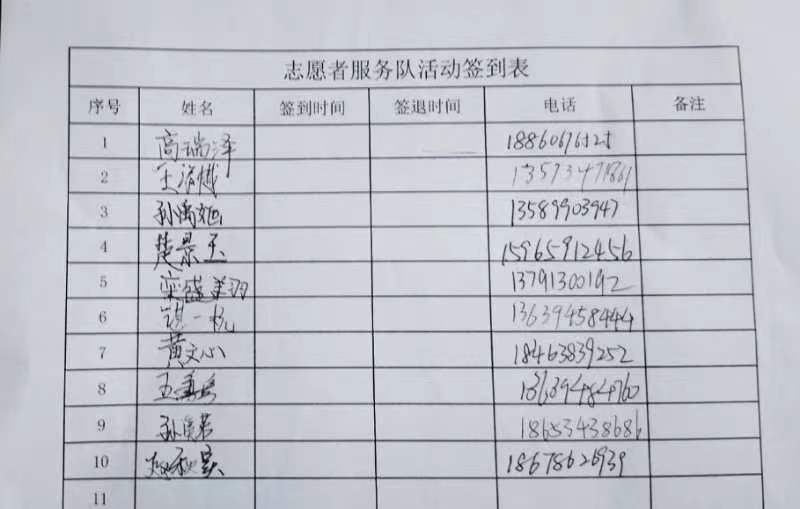 志愿者服务队活动签到表
序号 姓名 签到时间 签退时间 电话 备注
1 高瑞泽 18860676525
2 13573471861
3 孙禹旭 13589903947
4 楚景玉 15965912456
5 栾盛美羽 13791300192
6 13639458444
7 黄文心 18463839252
8 13639484760
9 18653438686
10 18678626939
11